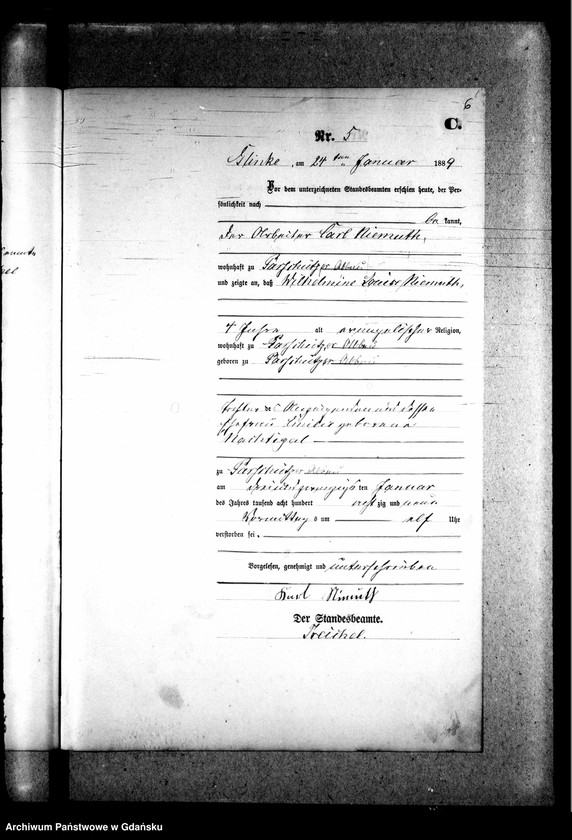 6
C.
Nr. 5
Glinke, am 24 ten Januar 1889
Vor dem unterzeichneten Standesbeamten erschien heute, der Per-
sönlichkeit nach
be kannt,
der Arbeiter Carl Niemuth,
wohnhaft zu Parschützer Abbau
und zeigte an, daß Wilhelmine Louise Niemuth,
4 Jahre alt evangelischer Religion,
wohnhaft zu Parschützer Abbau
geboren zu Parschützer Abbau
Tochter des Anzeigenden und dessen
Ehefrau geborene
Nachtigal
zu Parschützer Abbau
am dreiundzwanzigsten Januar
des Jahres tausend acht hundert achtzig und neun
Vormittag s um elf Uhr
verstorben sei.
Vorgelesen, genehmigt und unterschrieben
Karl Nimuth
Der Standesbeamte.
Treichel.
Archiwum Państwowe w Gdańsku